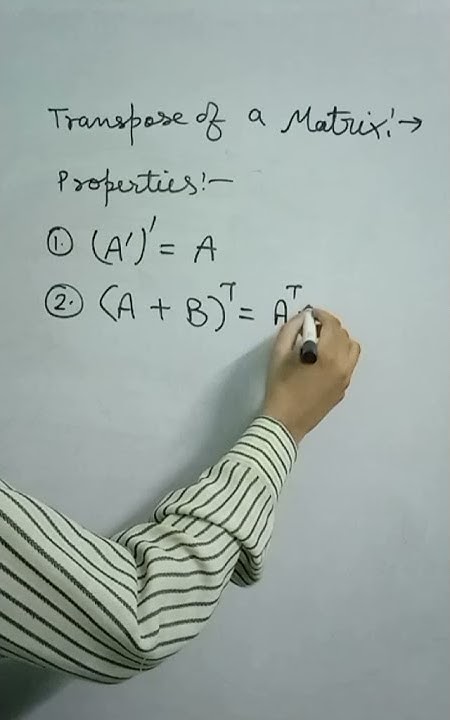 Transpose of a Matrix:→
Properties:—
①. (A')' = A
②. (A + B)ᵀ = Aᵀ